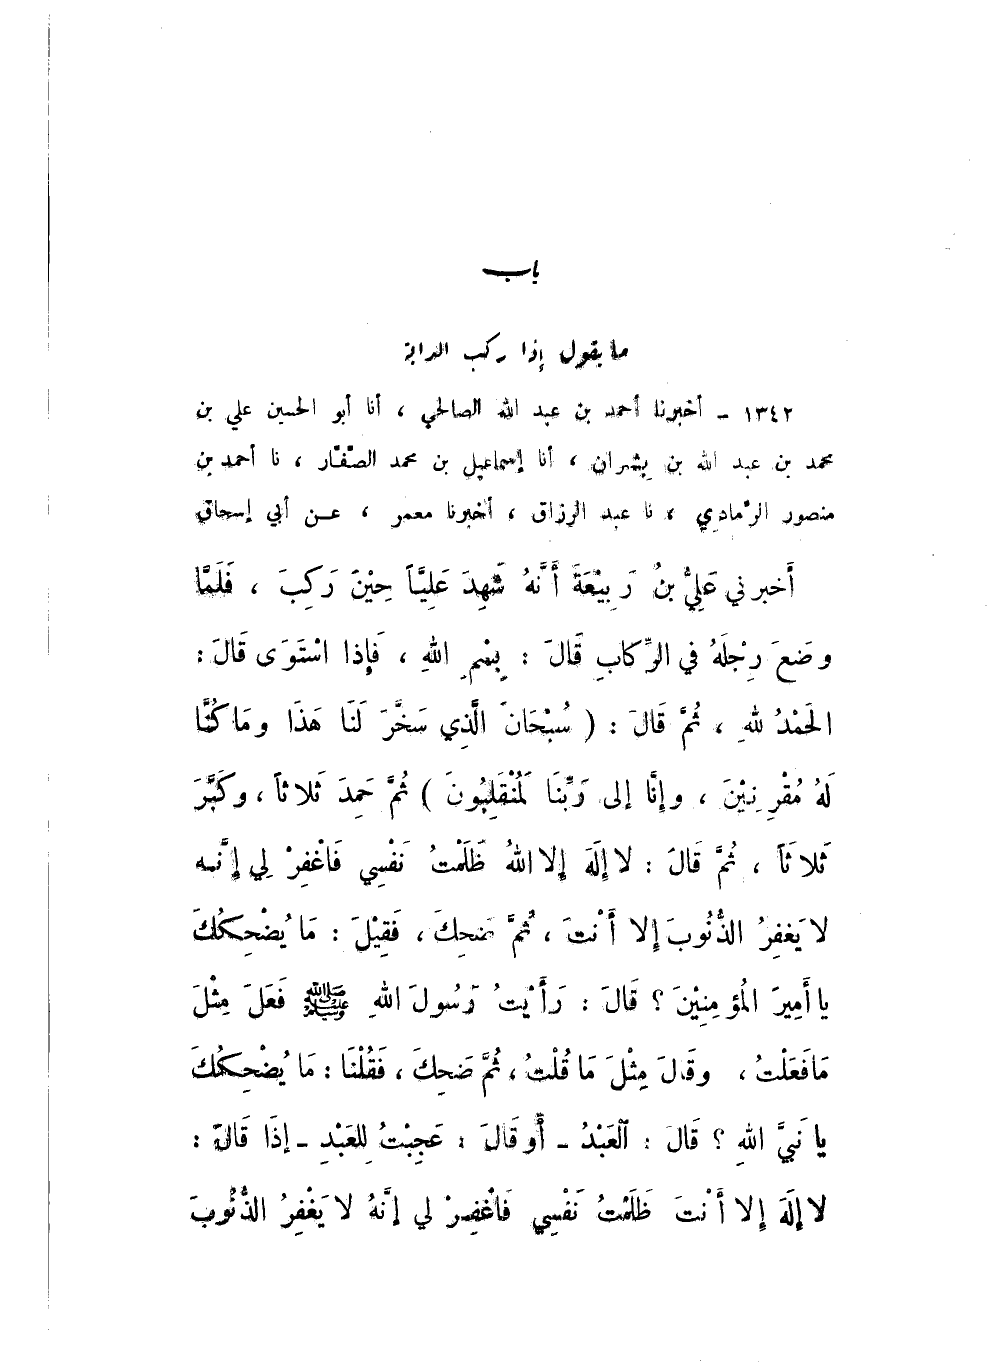 باب
ما يقول إذا ركب الدابة
١٣٤٢ ـ أخبرنا أحمد بن عبد الله الصالحي ، أنا أبو الحسين علي بن
محمد بن عبد الله بن بِشران ، أنا إسماعيل بن محمد الصَّفَّار ، نا أحمد بن
منصور الرَّمادِي ، نا عبد الرزاق ، أخبرنا معمر ، عن أبي إسحاق
أَخبرني عَلِيُّ بنُ رَبِيْعَةَ أَنَّهُ شَهِدَ عَلِيَّاً حِيْنَ رَكِبَ ، فَلَمَّا
وضَعَ رِجْلَهُ في الرِّكابِ قَالَ : بِسْمِ اللهِ ، فَإِذا اسْتَوَى قَالَ :
الحَمْدُ للهِ ، ثُمَّ قَالَ : ( سُبْحَانَ الَّذِي سَخَّرَ لَنَا هَذَا ومَا كُنَّا
لَهُ مُقْرِنِيْنَ ، وإِنَّا إلى رَبِّنَا لَمُنْقَلِبُونَ ) ثُمَّ حَمِدَ ثَلاثاً ، وكَبَّرَ
ثَلاثَاً ، ثُمَّ قَالَ : لا إِلَهَ إِلا اللهُ ظَلَمْتُ نَفْسِي فَاغْفِرْ لِي إِنَّـه
لا يَغفِرُ الذُّنُوبَ إلا أَنْتَ ، ثُمَّ ضحِكَ ، فَقِيْلَ : مَا يُضْحِكُكَ
يا أَمِيرَ المُؤمِنِيْنَ ؟ قَالَ : رَأَيْتُ رَسُولَ اللهِ ﷺ فَعَلَ مِثْلَ
مَا فَعَلْتُ ، وقَالَ مِثْلَ مَا قُلْتُ ، ثُمَّ ضَحِكَ ، فَقُلْنَا : مَا يُضْحِكُكَ
يا نَبِيَّ اللهِ ؟ قَالَ : اَلْعَبْدُ ـ أَو قَالَ : عَجِبْتُ لِلعَبْدِ ـ إذَا قَالَ :
لا إِلَهَ إِلا أَنْتَ ظَلَمْتُ نَفْسِي فَاغْفِرْ لي إِنَّهُ لا يَغْفِرُ الذُّنُوبَ